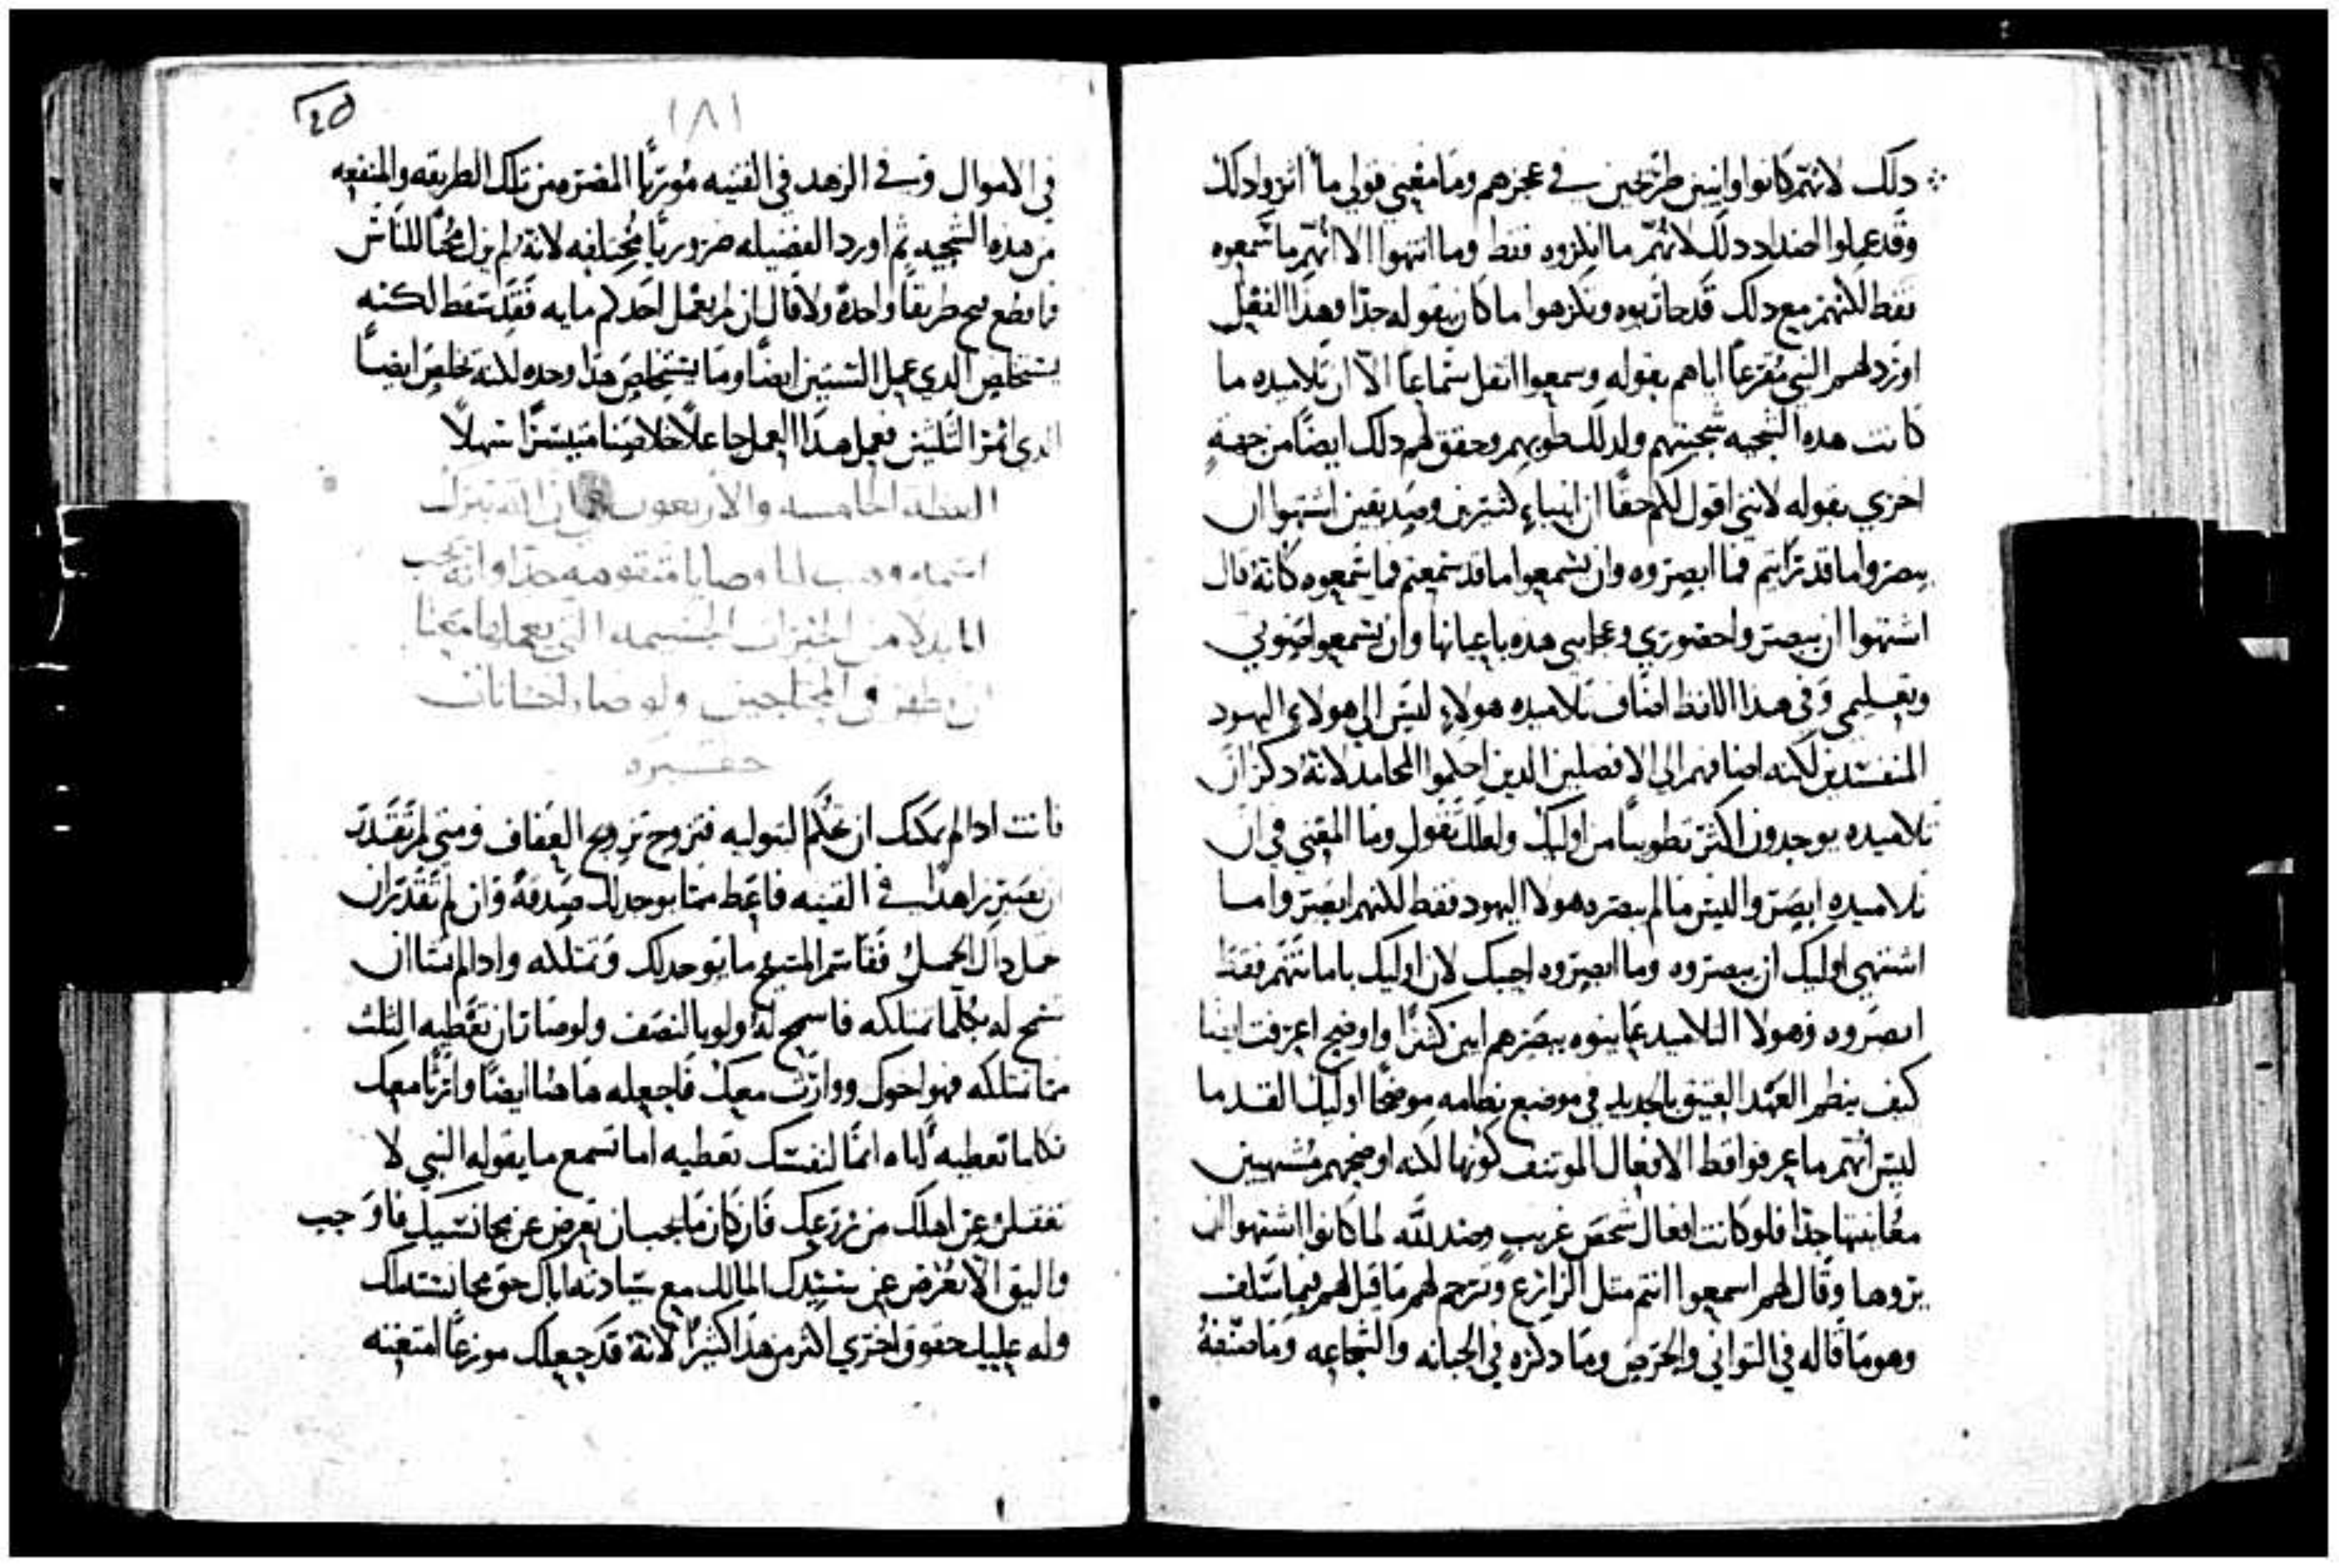 دلك لانهم كانوا وانيين طريحين في عجزهم وما معني قولي ما اثروا دلك
وقد عملوا اضداد دلك لانهم ما انكروه فقط وما انتهوا الا انهم ما سمعوه
فقط لكنهم مع دلك قد حاربوه وتكرهوا ما كان يقوله جدا وهذا الفعل
اورد لهم النبي مقرعاً اياهم بقوله وسمعوا اثقل سماعاً الا ان تلاميده ما
كانت هده السجيه سجيتهم ولدلك طوبهم وحقق لهم دلك ايضاً من جهةٍ
اخري بقوله لانني اقول لكم حقاً ان انبياء كثيرين وصديقين اشتهوا ان
يبصروا ما قد ترايتم فما ابصروه وان يسمعوا ما قد سمعتم فما سمعوه كانه قال
اشتهوا ان يبصروا حضوري وعجايبي هده باعيانها وان يسمعوا صوتي
وتعليمي وفي هدا اللفظ اضاف تلاميده هولاء ليس الي هولاي اليهود
المنفسدين لكنه اضافهم الي الافضلين الدين احكموا المحامد لانه دكر ان
تلاميده يوجدون اكثر تطويباً من اوليك ولعلك تقول وما المعني في ان
تلاميده ابصروا ليس ما لم يبصره هولا اليهود فقط لكنهم ابصروا ما
اشتهي اوليك ان يبصروه وما ابصروه اجيبك لان اوليك بامانتهم فقط
ابصروه وهولا التلاميد عاينوه ببصرهم ابين كثيراً واوضح اعرفت ايضا
كيف ينظم العهد العتيق بالجديد في موضع نظامه موضحاً اوليك القدما
ليس انهم ما عرفوا فقط الافعال الموتنف كونها لكنه اوضحهم مشتهيين
معاينتها جدا فلو كانت افعال شخص غريبٍ وضد لله لما كانوا اشتهوا ان
يروها وقال لهم اسمعوا انتم مثل الزارع وترجم لهم ما قيل لهم فيما سلف
وهو ما قاله في التواني والحرص وما دكره في الجبانه والشجاعه وما صنفهُ
٤٥
١٨١
في الاموال وفي الزهد في القنيه موريًا المضره من تلك الطريقه والمنفعه
من هده السجيه ثم اورد الفضيله ضروريًا مختلفه لانه لم يزل محبًا للناس
فاقطع طريقاً واحدة ولا قال ان لم يعمل احدكم مايه فقد سقط لكنه
يستخلص الدي عمل الستين ايضاً وما يستخلص هدا وحده لكنه يخلص ايضاً
الدي اثمر الثلثين فعمل هدا العمل جاعلاً خلاصنا متيسراً سهلاً
العظه الخامسه والاربعون في ان الله تبارك
اسمه وهب لنا وصايا متقومه جدا وانه يجب
حقيره
فانت ادا لم يمكنك ان تحكم البتوليه فتزوج تزويج العفاف ومتي لم تقدر
ان تصير زاهداً في القنيه فاعط مما يوجد لك صدقة وان لم تقدر ان
تحمل داك الحمل فقاسم المسيح ما يوجد لك وتمتلكه وادا لم تشا ان
تسمح له بكلما تمتلكه فاسمح له ولو بالنصف ولو صار ان تعطيه الثلث
مما تمتلكه فهو اخوك ووارث معك فاجعله هاهنا ايضاً وارثًا معك
فكلما تعطيه اياه انما لنفسك تعطيه اما تسمع ما يقوله النبي لا
تغفلن عن اهلك من زرعك فان كان ما يجب ان تعرض عن مجانسيك فاوجب
واليق الا تعرض عن سيدك المالك مع سيادته اياك حق مجانستك
وله عليك حقوق اخري اكثر من هدا كثيراً لانه قد جعلك موزعاً امتعته